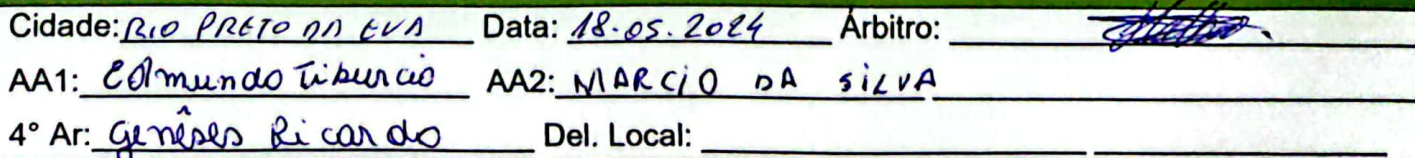 Cidade: RIO PRETO DA EVA Data: 18.05.2024 Árbitro:
AA1: Edmundo Tiburcio AA2: MARCIO DA SILVA
4° Ar: Genêses Ricardo Del. Local: